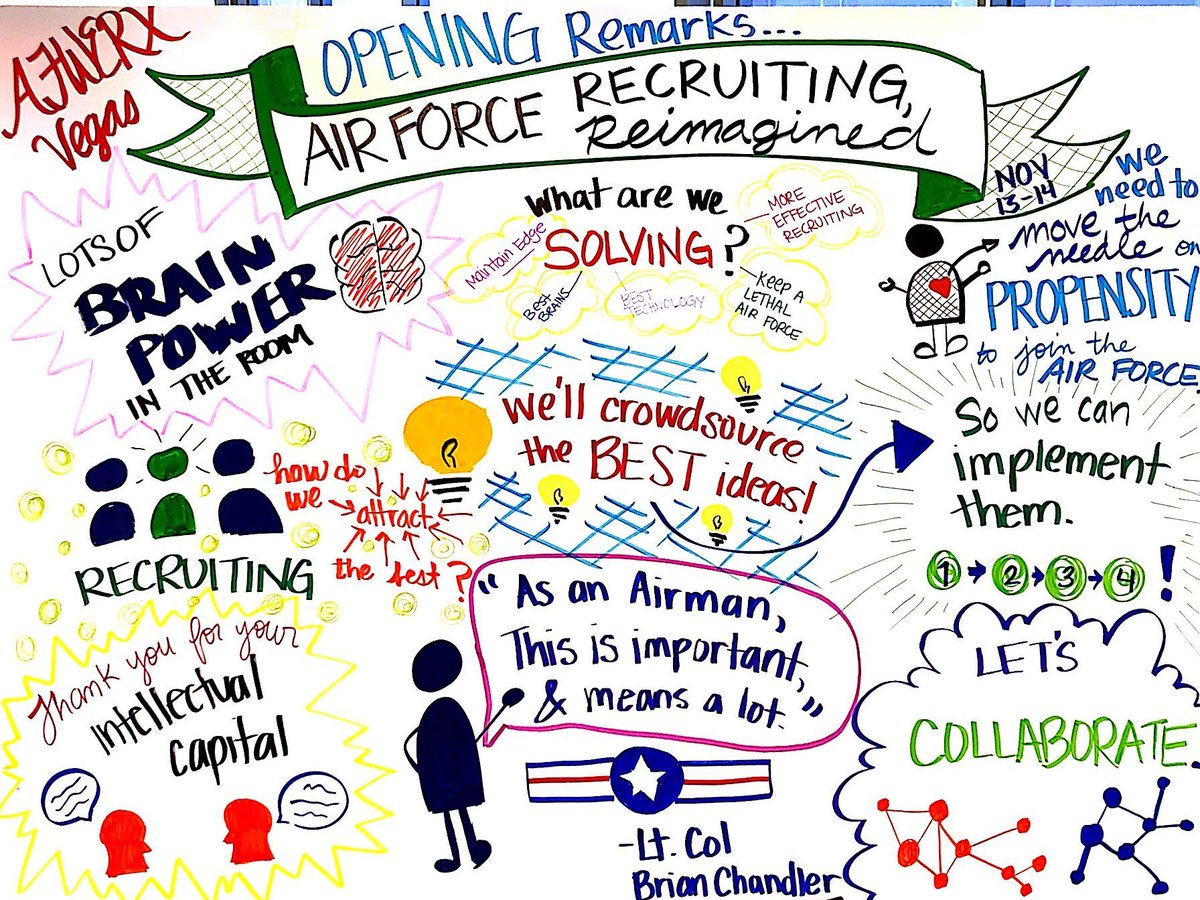 AFWERX
Vegas
OPENING Remarks...
AIR FORCE RECRUITING,
Reimagined
NOV
13-14
LOTS OF
BRAIN
POWER
IN THE ROOM
What are we
SOLVING?
Maintain Edge
BEST
BRAINS
BEST
TECHNOLOGY
MORE
EFFECTIVE
RECRUITING
KEEP A
LETHAL
AIR FORCE
we
need to
move the
needle on
PROPENSITY
to join the
AIR FORCE
we'll crowdsource
the BEST ideas!
So we can
implement
them.
1 2 3 4 !
how do
we
attract
the best?
RECRUITING
Thank you for your
intellectual
capital
"As an Airman,
This is important,
& means a lot."
-Lt. Col
Brian Chandler
LET'S
COLLABORATE.